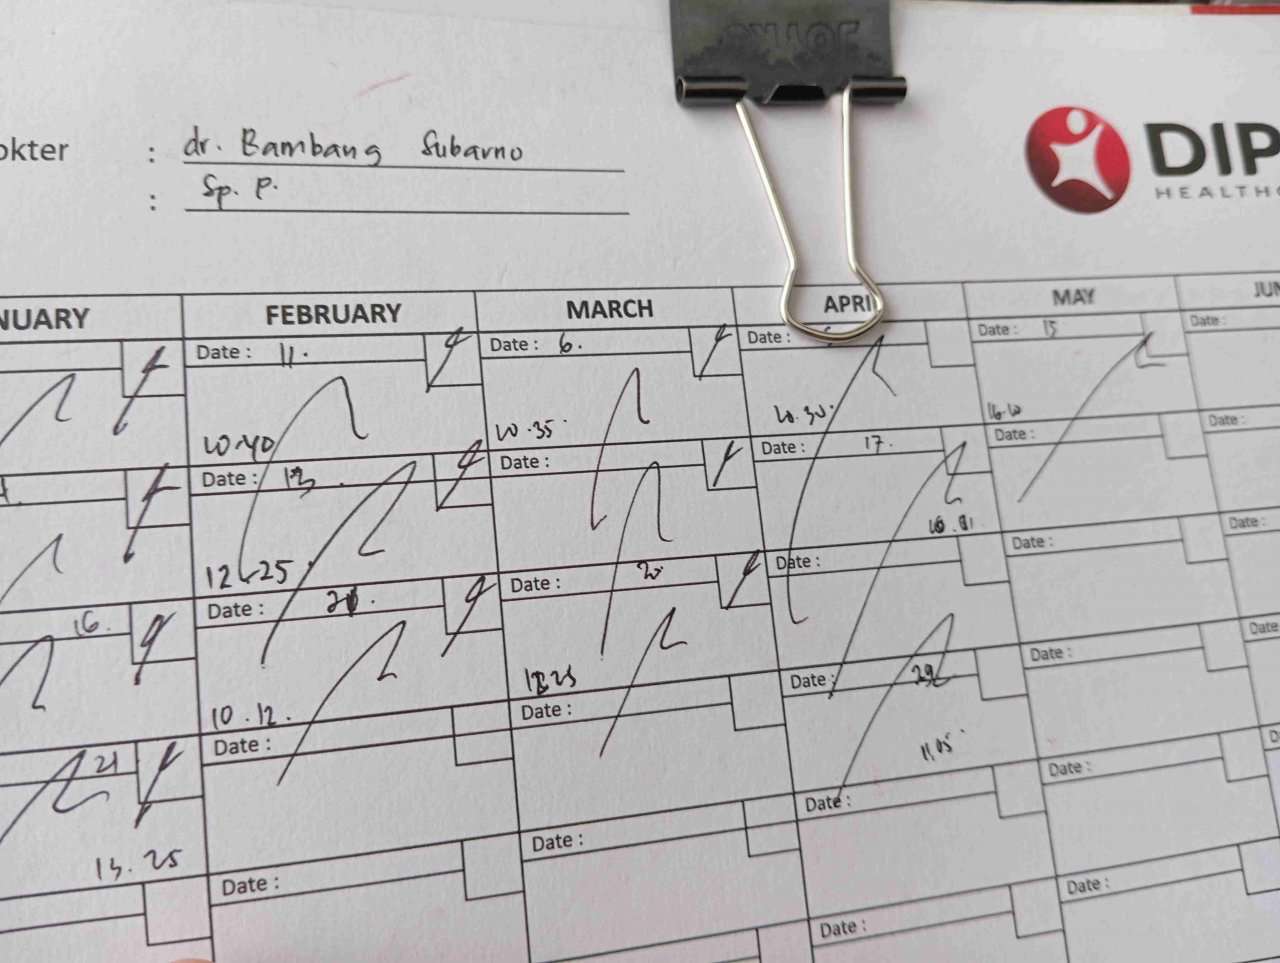 : dr. Bambang Subarno
: Sp. P.
DIP
HEALTH
FEBRUARY MARCH MAY
Date : 11. Date : 6. Date : Date : 15 Date :
10.40 10.35 10.30
Date : 13 Date : Date : 17. Date : Date :
12.25
16. Date : 21. Date : 20 Date : Date : Date :
10.12.
21 Date : Date : Date : 29 Date : Date
11.05
13.25 Date : Date : Date :
Date : Date : Date :